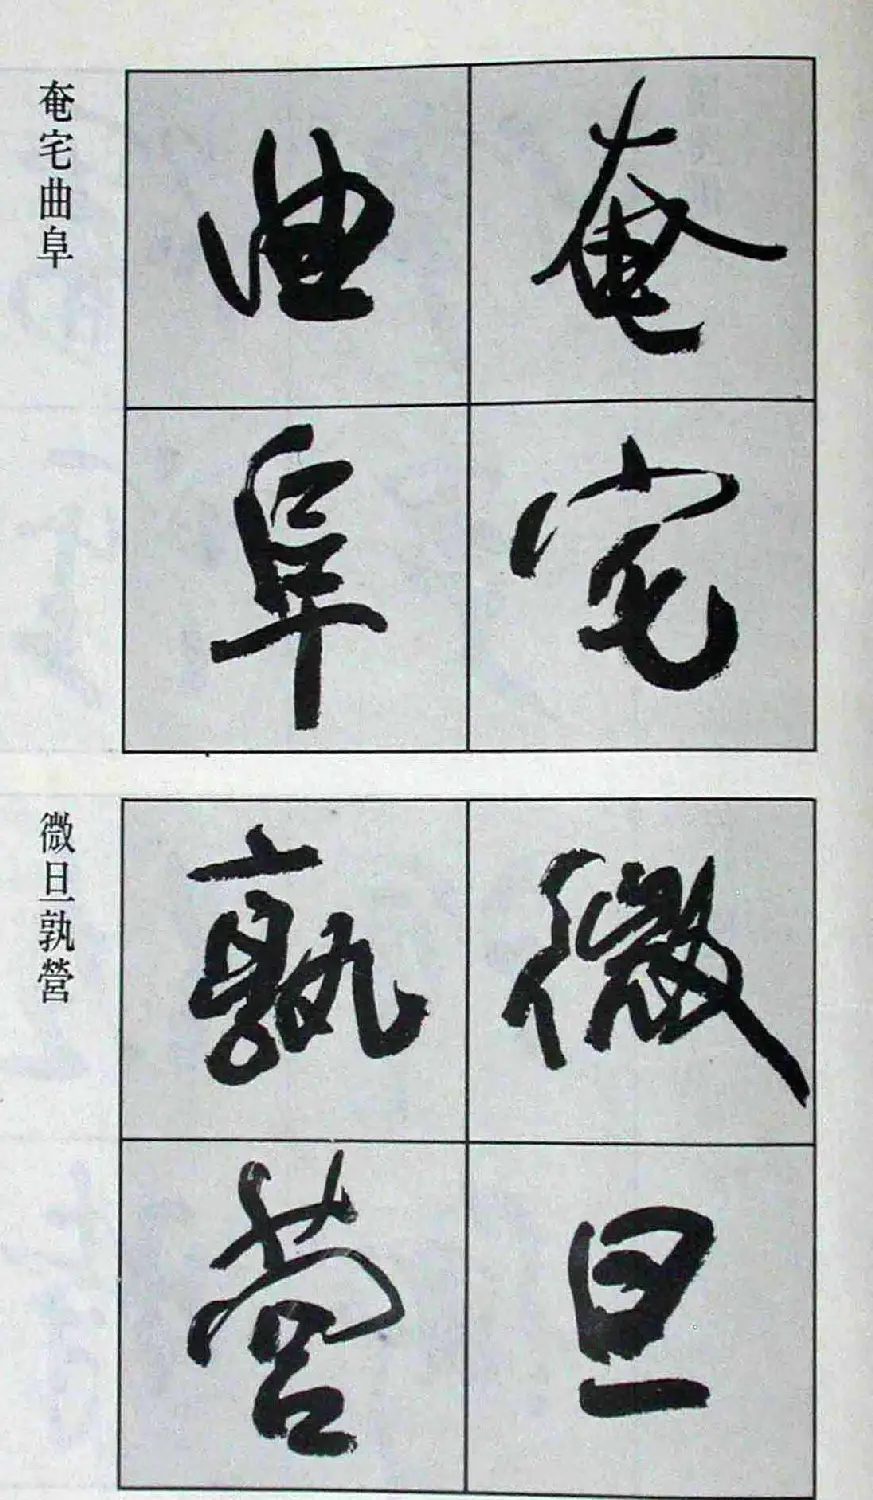 奄宅
曲阜
奄宅曲阜
微旦
孰營
微旦孰營